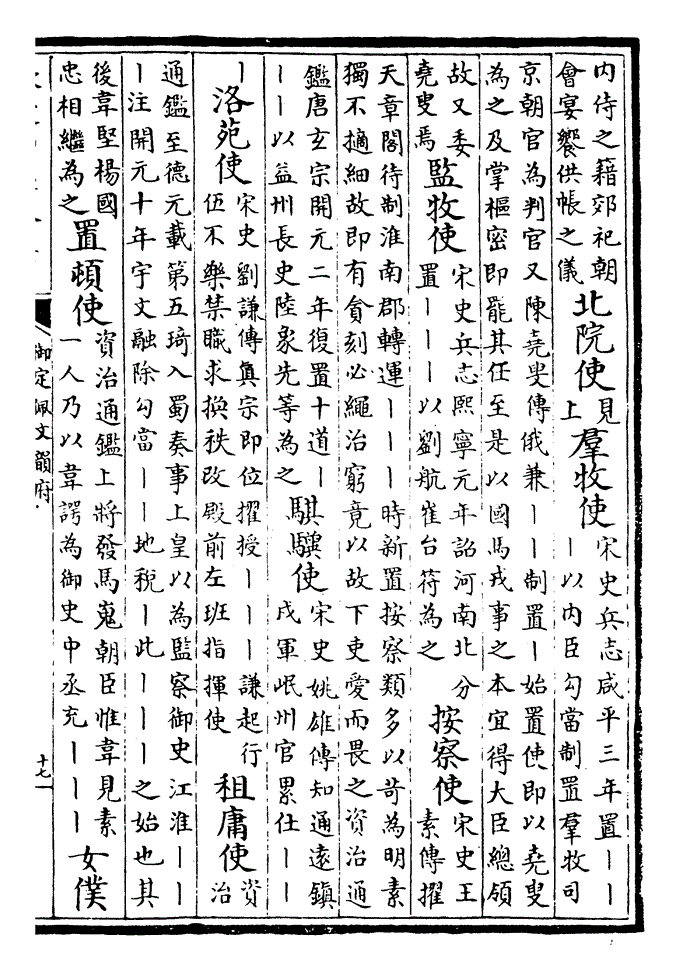 内侍之籍郊祀朝
會宴饗供帳之儀
北院使
見
上
羣牧使
宋史兵志咸平三年置丨丨
丨以内臣勾當制置羣牧司
京朝官為判官又陳堯叟傳俄兼丨丨制置丨始置使即以堯叟
為之及掌樞密即罷其任至是以國馬戎事之本宜得大臣總領
故又委
堯叟焉
監牧使
宋史兵志熙寧元年詔河南北分
置丨丨丨以劉航崔台符為之
按察使
宋史王
素傳擢
天章閣待制淮南郡轉運丨丨丨時新置按察類多以苛為明素
獨不擿細故即有貪刻必繩治窮竟以故下吏愛而畏之資治通
鑑唐玄宗開元二年復置十道丨
丨丨以益州長史陸象先等為之
騏驥使
宋史姚雄傳知通遠鎮
戎軍岷州官累仕丨丨
丨
洛苑使
宋史劉謙傳真宗即位擢授丨丨丨謙起行
伍不樂禁職求換秩改殿前左班指揮使
租庸使
資
治
通鑑至德元載第五琦入蜀奏事上皇以為監察御史江淮丨丨
丨注開元十年宇文融除勾當丨丨地税丨此丨丨丨之始也其
後韋堅楊國
忠相繼為之
置頓使
資治通鑑上將發馬嵬朝臣惟韋見素
一人乃以韋諤為御史中丞充丨丨丨
女僕
御定佩文韻府
十七